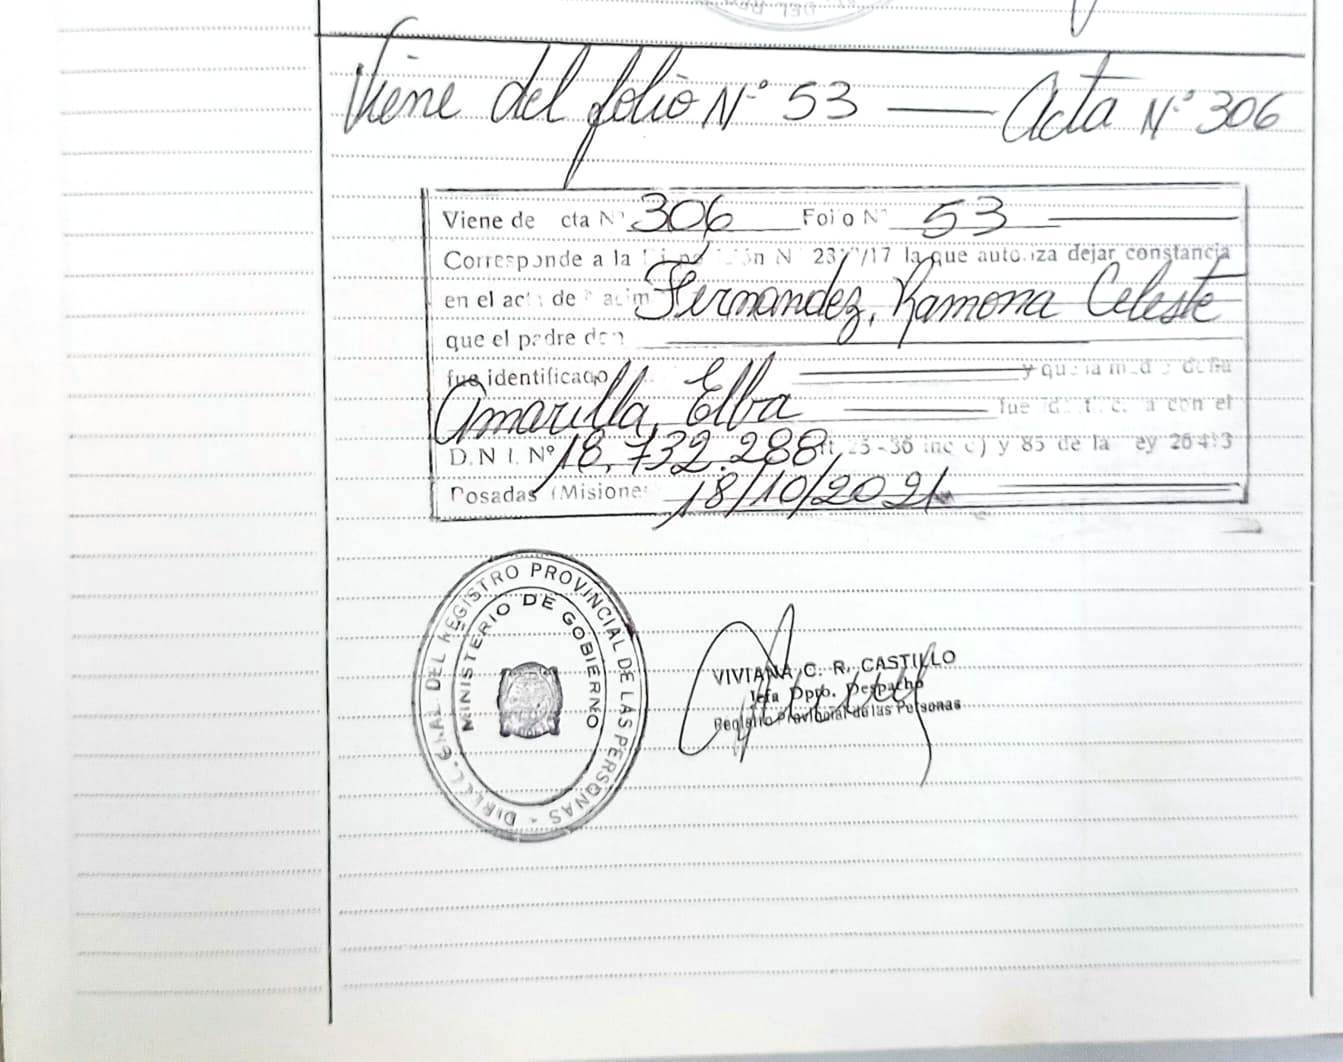 Viene del folio N° 53 — Acta N° 306
Viene de cta N° 306 Foi o N° 53
Corresponde a la N 23 /17 la que autoriza dejar constancia
en el acta de Fernandez, Ramona Celeste
que el padre don
fue identificado y que la madre doña
Amarilla, Elba fue con el
D.N.I. N° 18.732.288 25-36 inc c) y 85 de la ey 26413
Posadas (Misiones 18/10/2021
DIRECC. GRAL DEL REGISTRO PROVINCIAL DE LAS PERSONAS
MINISTERIO DE GOBIERNO
VIVIANA C. R. CASTILLO
Jefa Dpto. Despacho
Registro Provincial de las Personas